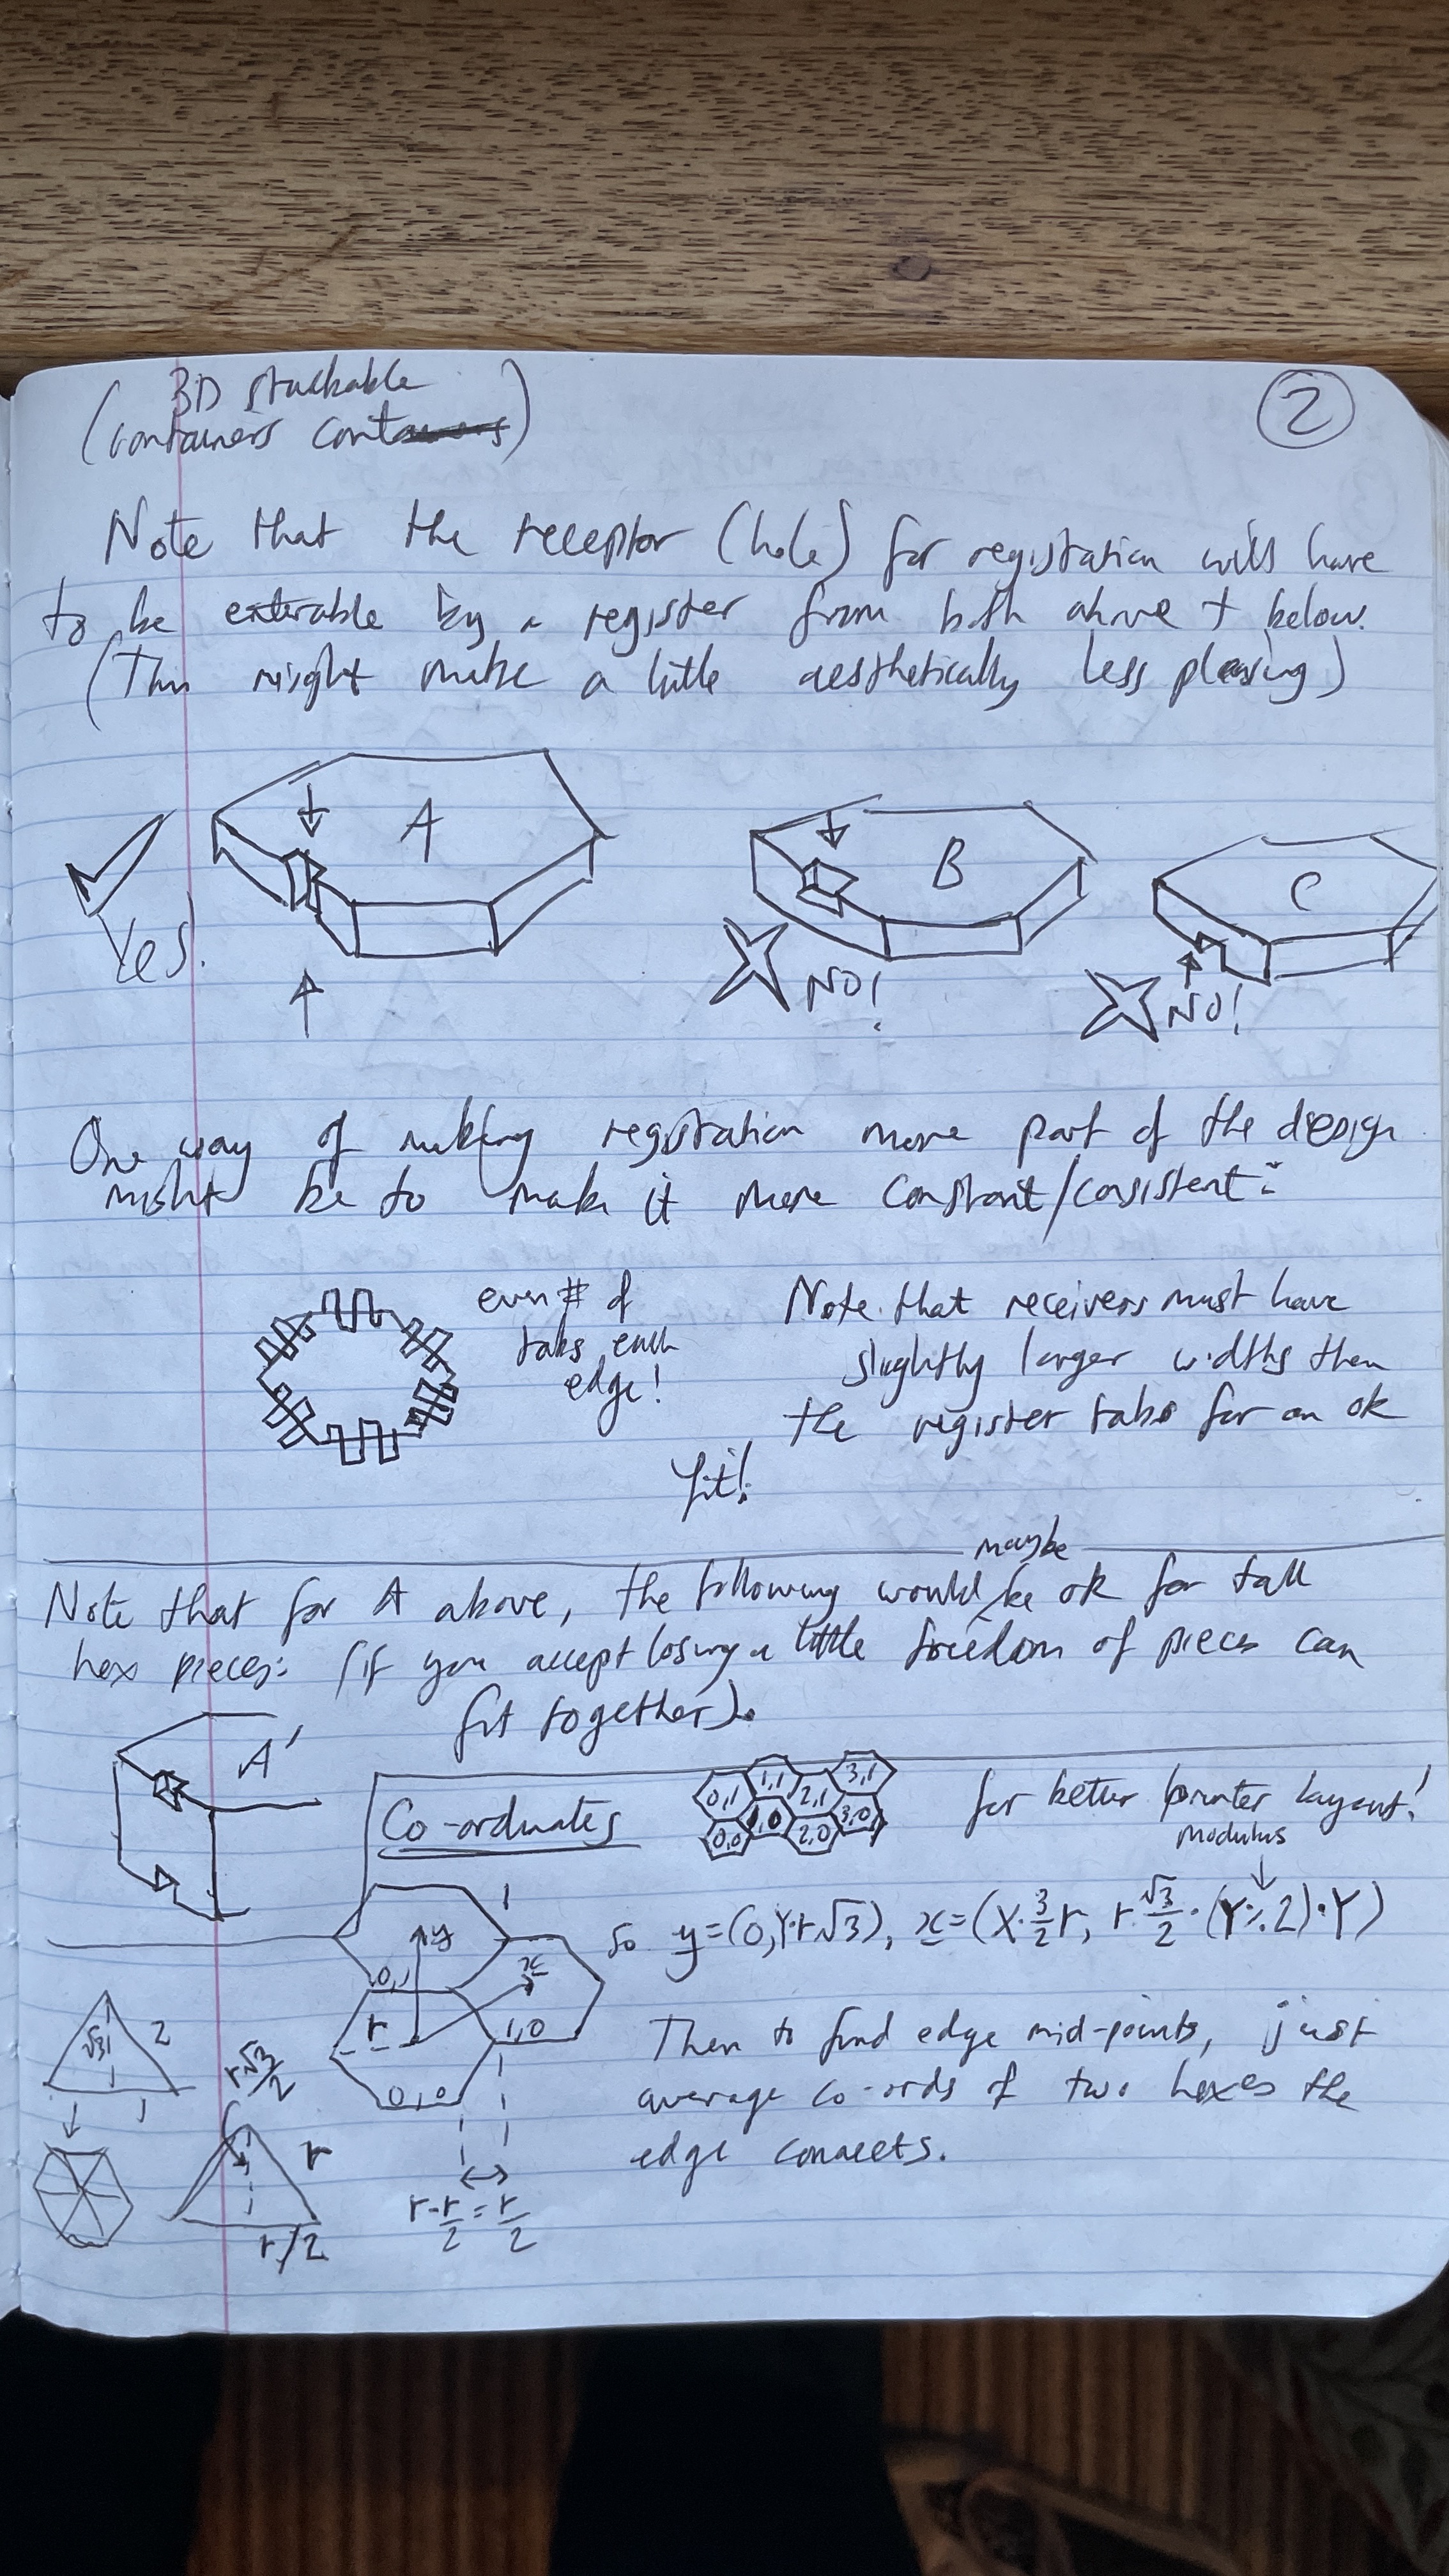 3D stackable
(containers contaners)
2
Note that the receptor (hole) for registration will have
to be enterable by a register from both above + below.
(This might make a little aesthetically less pleasing)
A
B
C
Yes.
NO!
NO!
One way of making registration more part of the design
might be to make it more constant/consistent:
even # of
tabs each
edge!
Note that receivers must have
slightly larger widths then
the register tabs for an ok
fit!
maybe
Note that for A above, the following would be ok for tall
hex pieces: (if you accept losing a little freedom of pieces can
fit together).
A'
Co-ordinates
0,1 1,1 2,1 3,1
0,0 1,0 2,0 3,0
for better printer layout!
modulus
so y=(0,Y·r√3), x=(X·3/2r, r·√3/2·(Y%2)·Y)
y
x
0,1
1,0
r
0,0
Then to find edge mid-points, just
average co-ords of two hexes the
edge connects.
√3
2
1
r√3/2
r
r/2
r-r/2=r/2